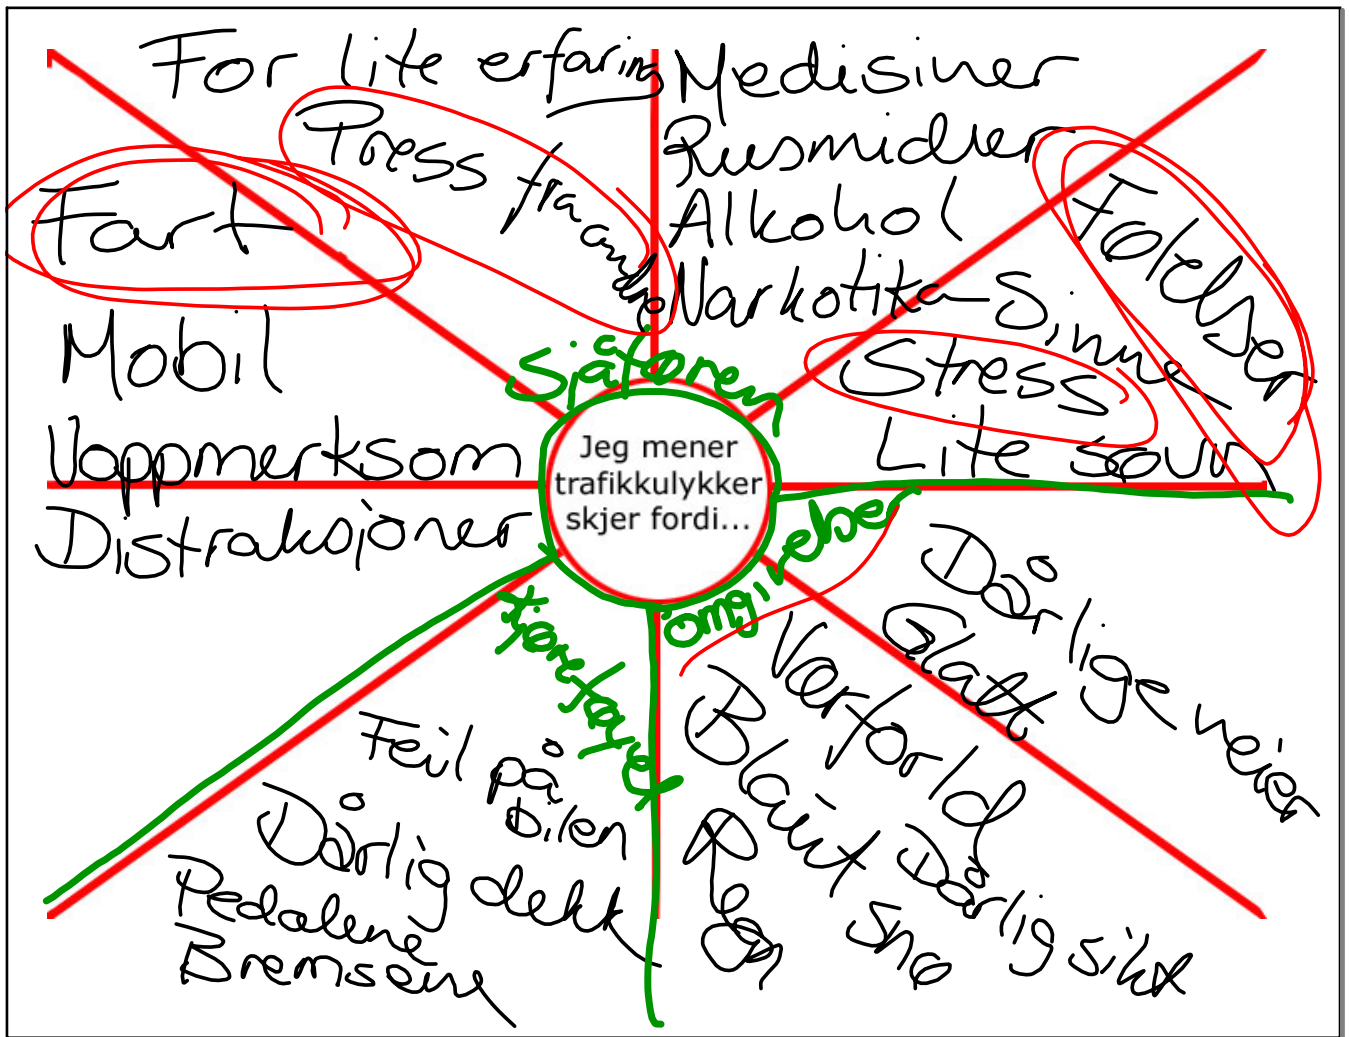 For lite erfaring
Press fra andre
Fart
Mobil
Uoppmerksom
Distraksjoner
Medisiner
Rusmidler
Alkohol
Narkotika
Følelser
Sinne
Stress
Lite søvn
Sjåføren
Jeg mener
trafikkulykker
skjer fordi...
omgivelser
kjøretøyet
Dårlige veier
Glatt
Værforhold
Dårlig sikt
Blaut snø
Regn
Feil på
bilen
Dårlig dekk
Pedalene
Bremsene